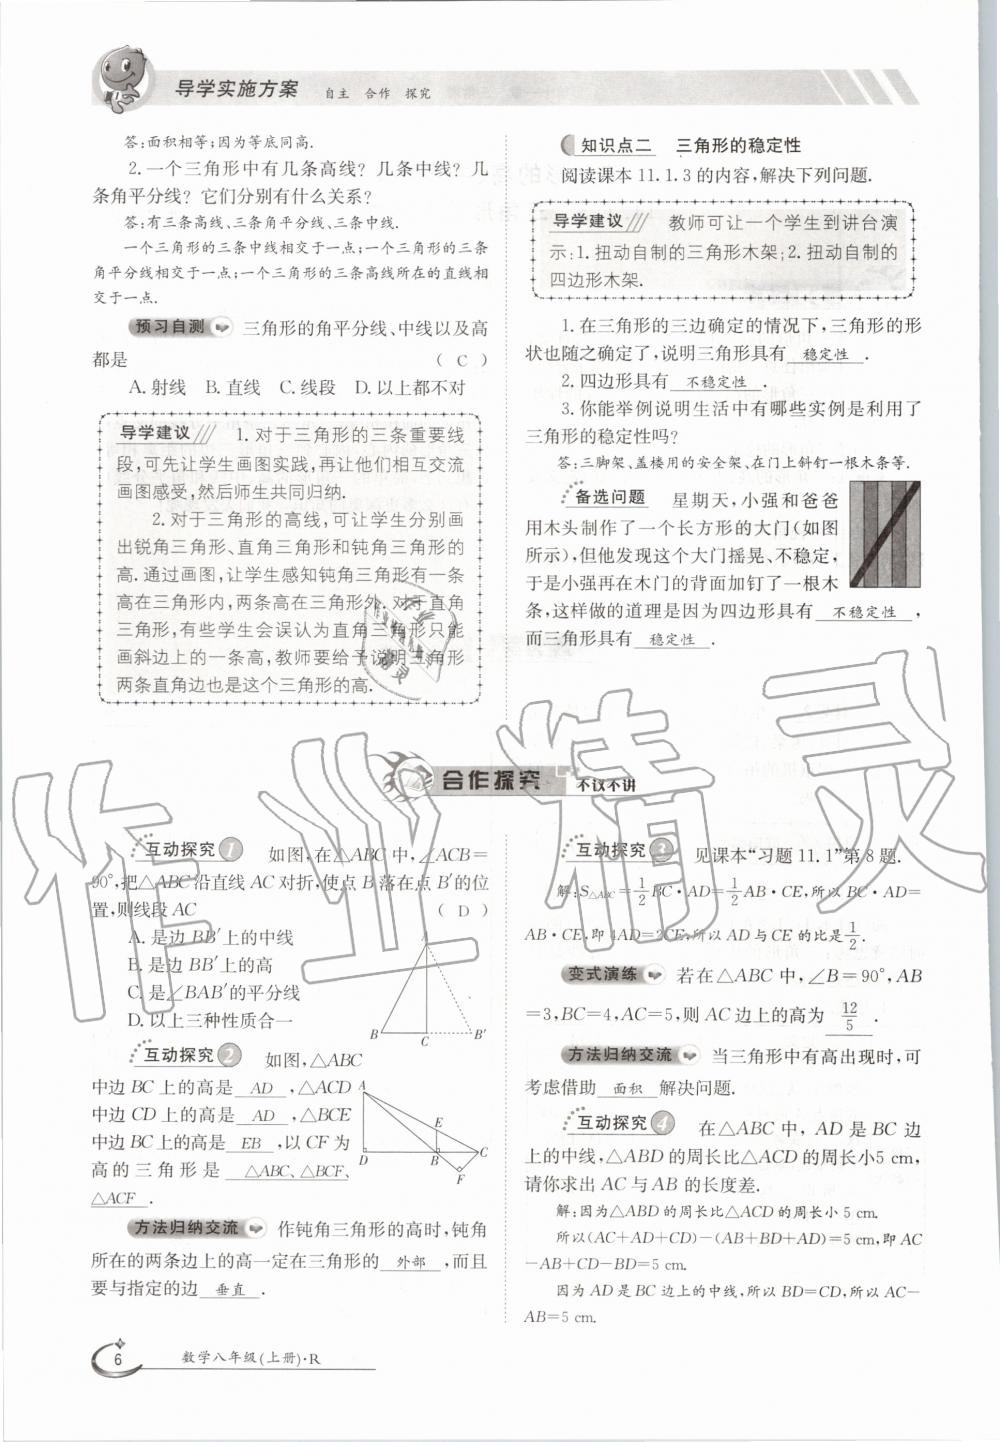 导学实施方案 自主 合作 探究
答:面积相等;因为等底同高.
2.一个三角形中有几条高线？几条中线？几
条角平分线？它们分别有什么关系？
答:有三条高线、三条角平分线、三条中线.
一个三角形的三条中线相交于一点;一个三角形的三条
角平分线相交于一点;一个三角形的三条高线所在的直线相
交于一点.
预习自测 三角形的角平分线、中线以及高
都是 ( C )
A.射线 B.直线 C.线段 D.以上都不对
导学建议 1.对于三角形的三条重要线
段,可先让学生画图实践,再让他们相互交流
画图感受,然后师生共同归纳.
2.对于三角形的高线,可让学生分别画
出锐角三角形、直角三角形和钝角三角形的
高.通过画图,让学生感知钝角三角形有一条
高在三角形内,两条高在三角形外.对于直角
三角形,有些学生会误认为直角三角形只能
画斜边上的一条高,教师要给予说明三角形
两条直角边也是这个三角形的高.
知识点二 三角形的稳定性
阅读课本 11.1.3 的内容,解决下列问题.
导学建议 教师可让一个学生到讲台演
示:1.扭动自制的三角形木架;2.扭动自制的
四边形木架.
1.在三角形的三边确定的情况下,三角形的形
状也随之确定了,说明三角形具有 稳定性 .
2.四边形具有 不稳定性 .
3.你能举例说明生活中有哪些实例是利用了
三角形的稳定性吗？
答:三脚架、盖楼用的安全架、在门上斜钉一根木条等.
备选问题 星期天,小强和爸爸
用木头制作了一个长方形的大门(如图
所示),但他发现这个大门摇晃、不稳定,
于是小强再在木门的背面加钉了一根木
条,这样做的道理是因为四边形具有 不稳定性 ,
而三角形具有 稳定性 .
合作探究 不议不讲
互动探究1 如图,在△ABC 中,∠ACB=
90°,把△ABC 沿直线 AC 对折,使点 B 落在点 B′的位
置,则线段 AC ( D )
A.是边 BB′上的中线
B.是边 BB′上的高
C.是∠BAB′的平分线
D.以上三种性质合一
A
B C B′
互动探究2 如图,△ABC
中边 BC 上的高是 AD ,△ACD
中边 CD 上的高是 AD ,△BCE
中边 BC 上的高是 EB ,以 CF 为
高的三角形是 △ABC、△BCF、
△ACF .
A
E
D B C
F
方法归纳交流 作钝角三角形的高时,钝角
所在的两条边上的高一定在三角形的 外部 ,而且
要与指定的边 垂直 .
互动探究3 见课本“习题 11.1”第 8 题.
解:S△ABC=1/2BC·AD=1/2AB·CE,所以 BC·AD=
AB·CE,即 4AD=2CE,所以 AD 与 CE 的比是1/2.
变式演练 若在△ABC 中,∠B=90°,AB
=3,BC=4,AC=5,则 AC 边上的高为 12/5 .
方法归纳交流 当三角形中有高出现时,可
考虑借助 面积 解决问题.
互动探究4 在△ABC 中, AD 是 BC 边
上的中线,△ABD 的周长比△ACD 的周长小5 cm,
请你求出 AC 与 AB 的长度差.
解:因为△ABD 的周长比△ACD 的周长小 5 cm.
所以(AC+AD+CD)-(AB+BD+AD)=5 cm,即 AC
-AB+CD-BD=5 cm.
因为 AD 是 BC 边上的中线,所以 BD=CD,所以 AC-
AB=5 cm.
6 数学八年级(上册)·R
作业精灵